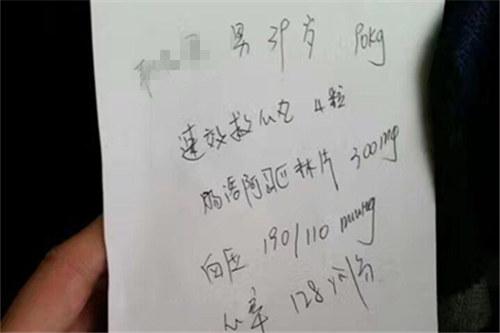 男 39岁 90kg
速效救心丸 4粒
肠溶阿司匹林片 300mg
血压 190/110 mmHg
心率 128次/分